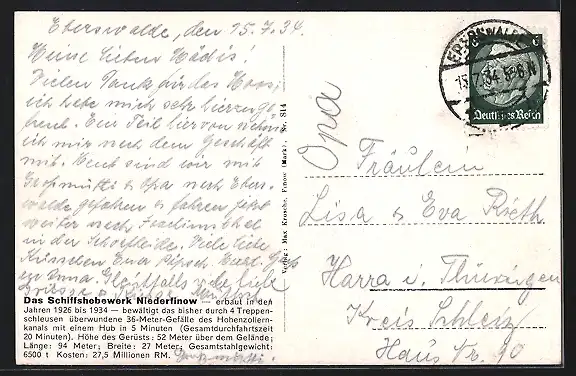 Eberswalde, den 15.7.34.
Meine lieben Mädis!
Vielen Dank für das Moos,
ich habe mich sehr hierzu ge-
freut. Ein Teil hiervon nehme
ich mir nach dem Geschäft
mit. Heut sind wir mit
Großmutti & Opa nach Ebers-
walde gefahren & fahren jetzt
weiter nach Joachimsthal
in der Schorfheide. Viele liebe
Das Schiffshebewerk Niederfinow — erbaut in den
Jahren 1926 bis 1934 — bewältigt das bisher durch 4 Treppen-
schleusen überwundene 36-Meter-Gefälle des Hohenzollern-
kanals mit einem Hub in 5 Minuten (Gesamtdurchfahrtszeit
20 Minuten). Höhe des Gerüsts: 52 Meter über dem Gelände;
Länge: 94 Meter; Breite: 27 Meter; Gesamtstahlgewicht:
6500 t Kosten: 27,5 Millionen RM.
Großmutti.
Verlag: Max Krosche, Finow (Mark). Nr. 814
Opa
EBERSWALDE
15.7.34
6
Deutsches Reich
Fräulein
Lisa & Eva Rieth
Harra i. Thüringen
Kreis Schleiz
Haus Nr. 90